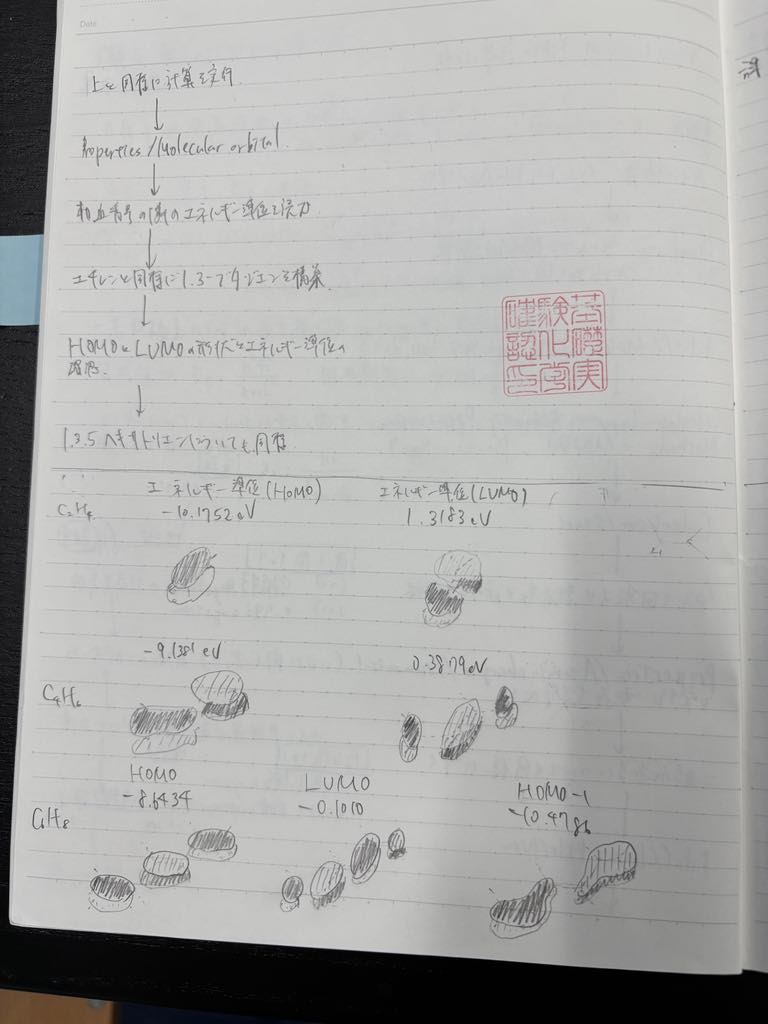 Date
上と同様に計算を実行
Properties/Molecular orbital
軌道番号の横のエネルギー準位を読む
エチレンと同様に1.3-ブタジエンを構築
HOMOとLUMOの形状とエネルギー準位の
確認.
1.3.5ヘキサトリエンについても同様
エネルギー準位(HOMO) エネルギー準位(LUMO)
C2H4 -10.1752eV 1.3183eV
-9.1381eV 0.3879eV
C4H6
HOMO LUMO HOMO-1
-8.6434 -0.1010 -10.4786
C6H8
基礎実
験化学
確認印